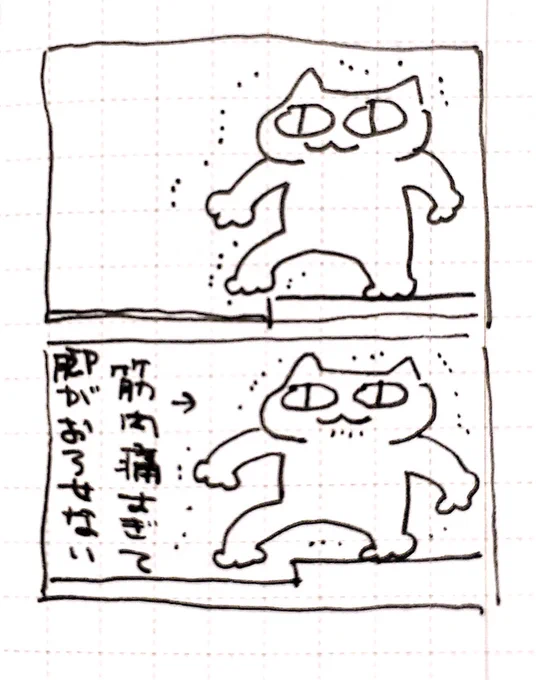 筋肉痛すぎて
脚がおろせない